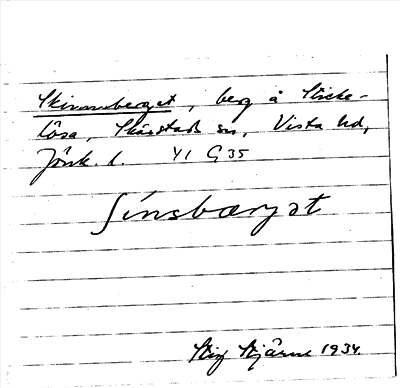 Skinnsberget, berg å Sticke-
lösa, Skärstads sn, Vista hd,
Jönk. l. Y1 G35
ſínsbærjət
Stig Bjärne 1934.